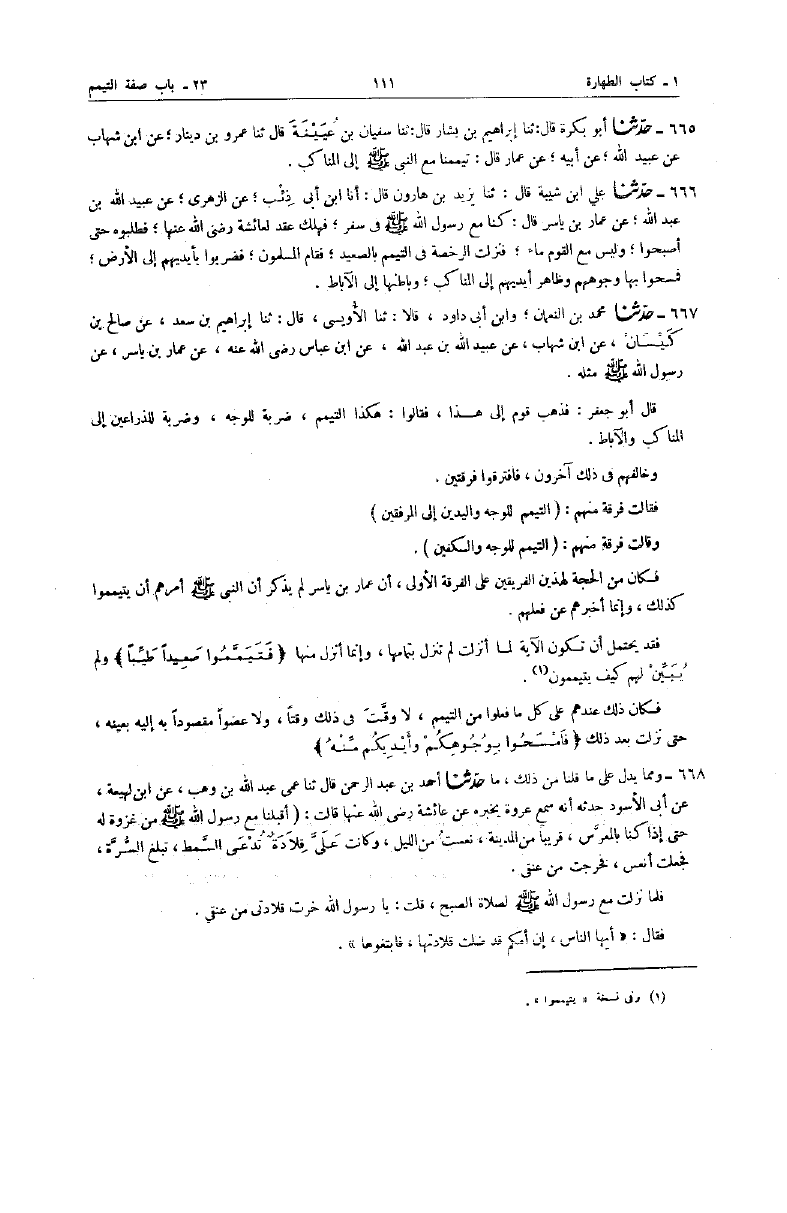 ١ ـ كتاب الطهارة ١١١ ٢٣ ـ باب صفة التيمم
٦٦٥ ـ حدثنا أبو بكرة قال: ثنا إبراهيم بن بشار قال: ثنا سفيان بن عُيَيْنَةَ قال ثنا عمرو بن دينار ؛ عن ابن شهاب
عن عبيد الله ؛ عن أبيه ؛ عن عمار قال : تيممنا مع النبي ﷺ إلى المناكب .
٦٦٦ ـ حدثنا علي ابن شيبة قال : ثنا يزيد بن هارون قال : أنا ابن أبى ذِئْب ؛ عن الزهرى ؛ عن عبيد الله بن
عبد الله ؛ عن عمار بن ياسر قال : كنا مع رسول الله ﷺ فى سفر ؛ فهلك عقد لعائشة رضى الله عنها ؛ فطلبوه حتى
أصبحوا ؛ وليس مع القوم ماء ؛ فنزلت الرخصة فى التيمم بالصعيد ؛ فقام المسلمون ؛ فضربوا بأيديهم إلى الأرض ؛
فمسحوا بها وجوههم وظاهر أيديهم إلى المناكب ؛ وباطنها إلى الآباط .
٦٦٧ ـ حدثنا محمد بن النعمان ؛ وابن أبى داود ، قالا : ثنا الأُويسى ، قال : ثنا إبراهيم بن سعد ، عن صالح بن
كَيْسَانَ ، عن ابن شهاب ، عن عبيد الله بن عبد الله ، عن ابن عباس رضى الله عنه ، عن عمار بن ياسر ، عن
رسول الله ﷺ مثله .
قال أبو جعفر : فذهب قوم إلى هذا ، فقالوا : هكذا التيمم ، ضربة للوجه ، وضربة للذراعين إلى
المناكب والآباط .
وخالفهم فى ذلك آخرون ، فافترقوا فرقتين .
فقالت فرقة منهم : ( التيمم للوجه واليدين إلى المرفقين )
وقالت فرقة منهم : ( التيمم للوجه والكفين ) .
فكان من الحجة لهذين الفريقين على الفرقة الأولى ، أن عمار بن ياسر لم يذكر أن النبى ﷺ أمرهم أن يتيمموا
كذلك ، وإنما أخبرهم عن فعلهم .
فقد يحتمل أن تكون الآية لما أنزلت لم تنزل بتمامها ، وإنما أنزل منها ﴿ فَتَيَمَّمُوا صَعِيداً طَيِّباً ﴾ ولم
يُبَيِّنْ لهم كيف يتيممون(١) .
فكان ذلك عندهم على كل ما فعلوا من التيمم ، لا وقَّتَ فى ذلك وقتاً ، ولا عضواً مقصوداً به إليه بعينه ،
حتى نزلت بعد ذلك ﴿ فَامْسَحُوا بِوُجُوهِكُمْ وَأَيْدِيكُم مِّنْهُ ﴾
٦٦٨ ـ ومما يدل على ما قلنا من ذلك ، ما حدثنا أحمد بن عبد الرحمن قال ثنا عمى عبد الله بن وهب ، عن ابن لهيعة ،
عن أبى الأسود حدثه أنه سمع عروة يخبره عن عائشة رضى الله عنها قالت : ( أقبلنا مع رسول الله ﷺ من غزوة له
حتى إذا كنا بالمعرَّس ، قريباً من المدينة ، نعستُ من الليل ، وكانت عَلَىَّ قِلاَدَةٌ تُدْعَى السَّمط ، تبلغ السُّرَّة ،
فجعلت أنعس ، فخرجت من عنقى .
فلما نزلت مع رسول الله ﷺ لصلاة الصبح ، قلت : يا رسول الله خرت قلادتى من عنقى .
فقال : « أيها الناس ، إن أمكم قد ضلت قلادتها ، فابتغوها » .
(١) وفى نسخة « يتيمموا » .